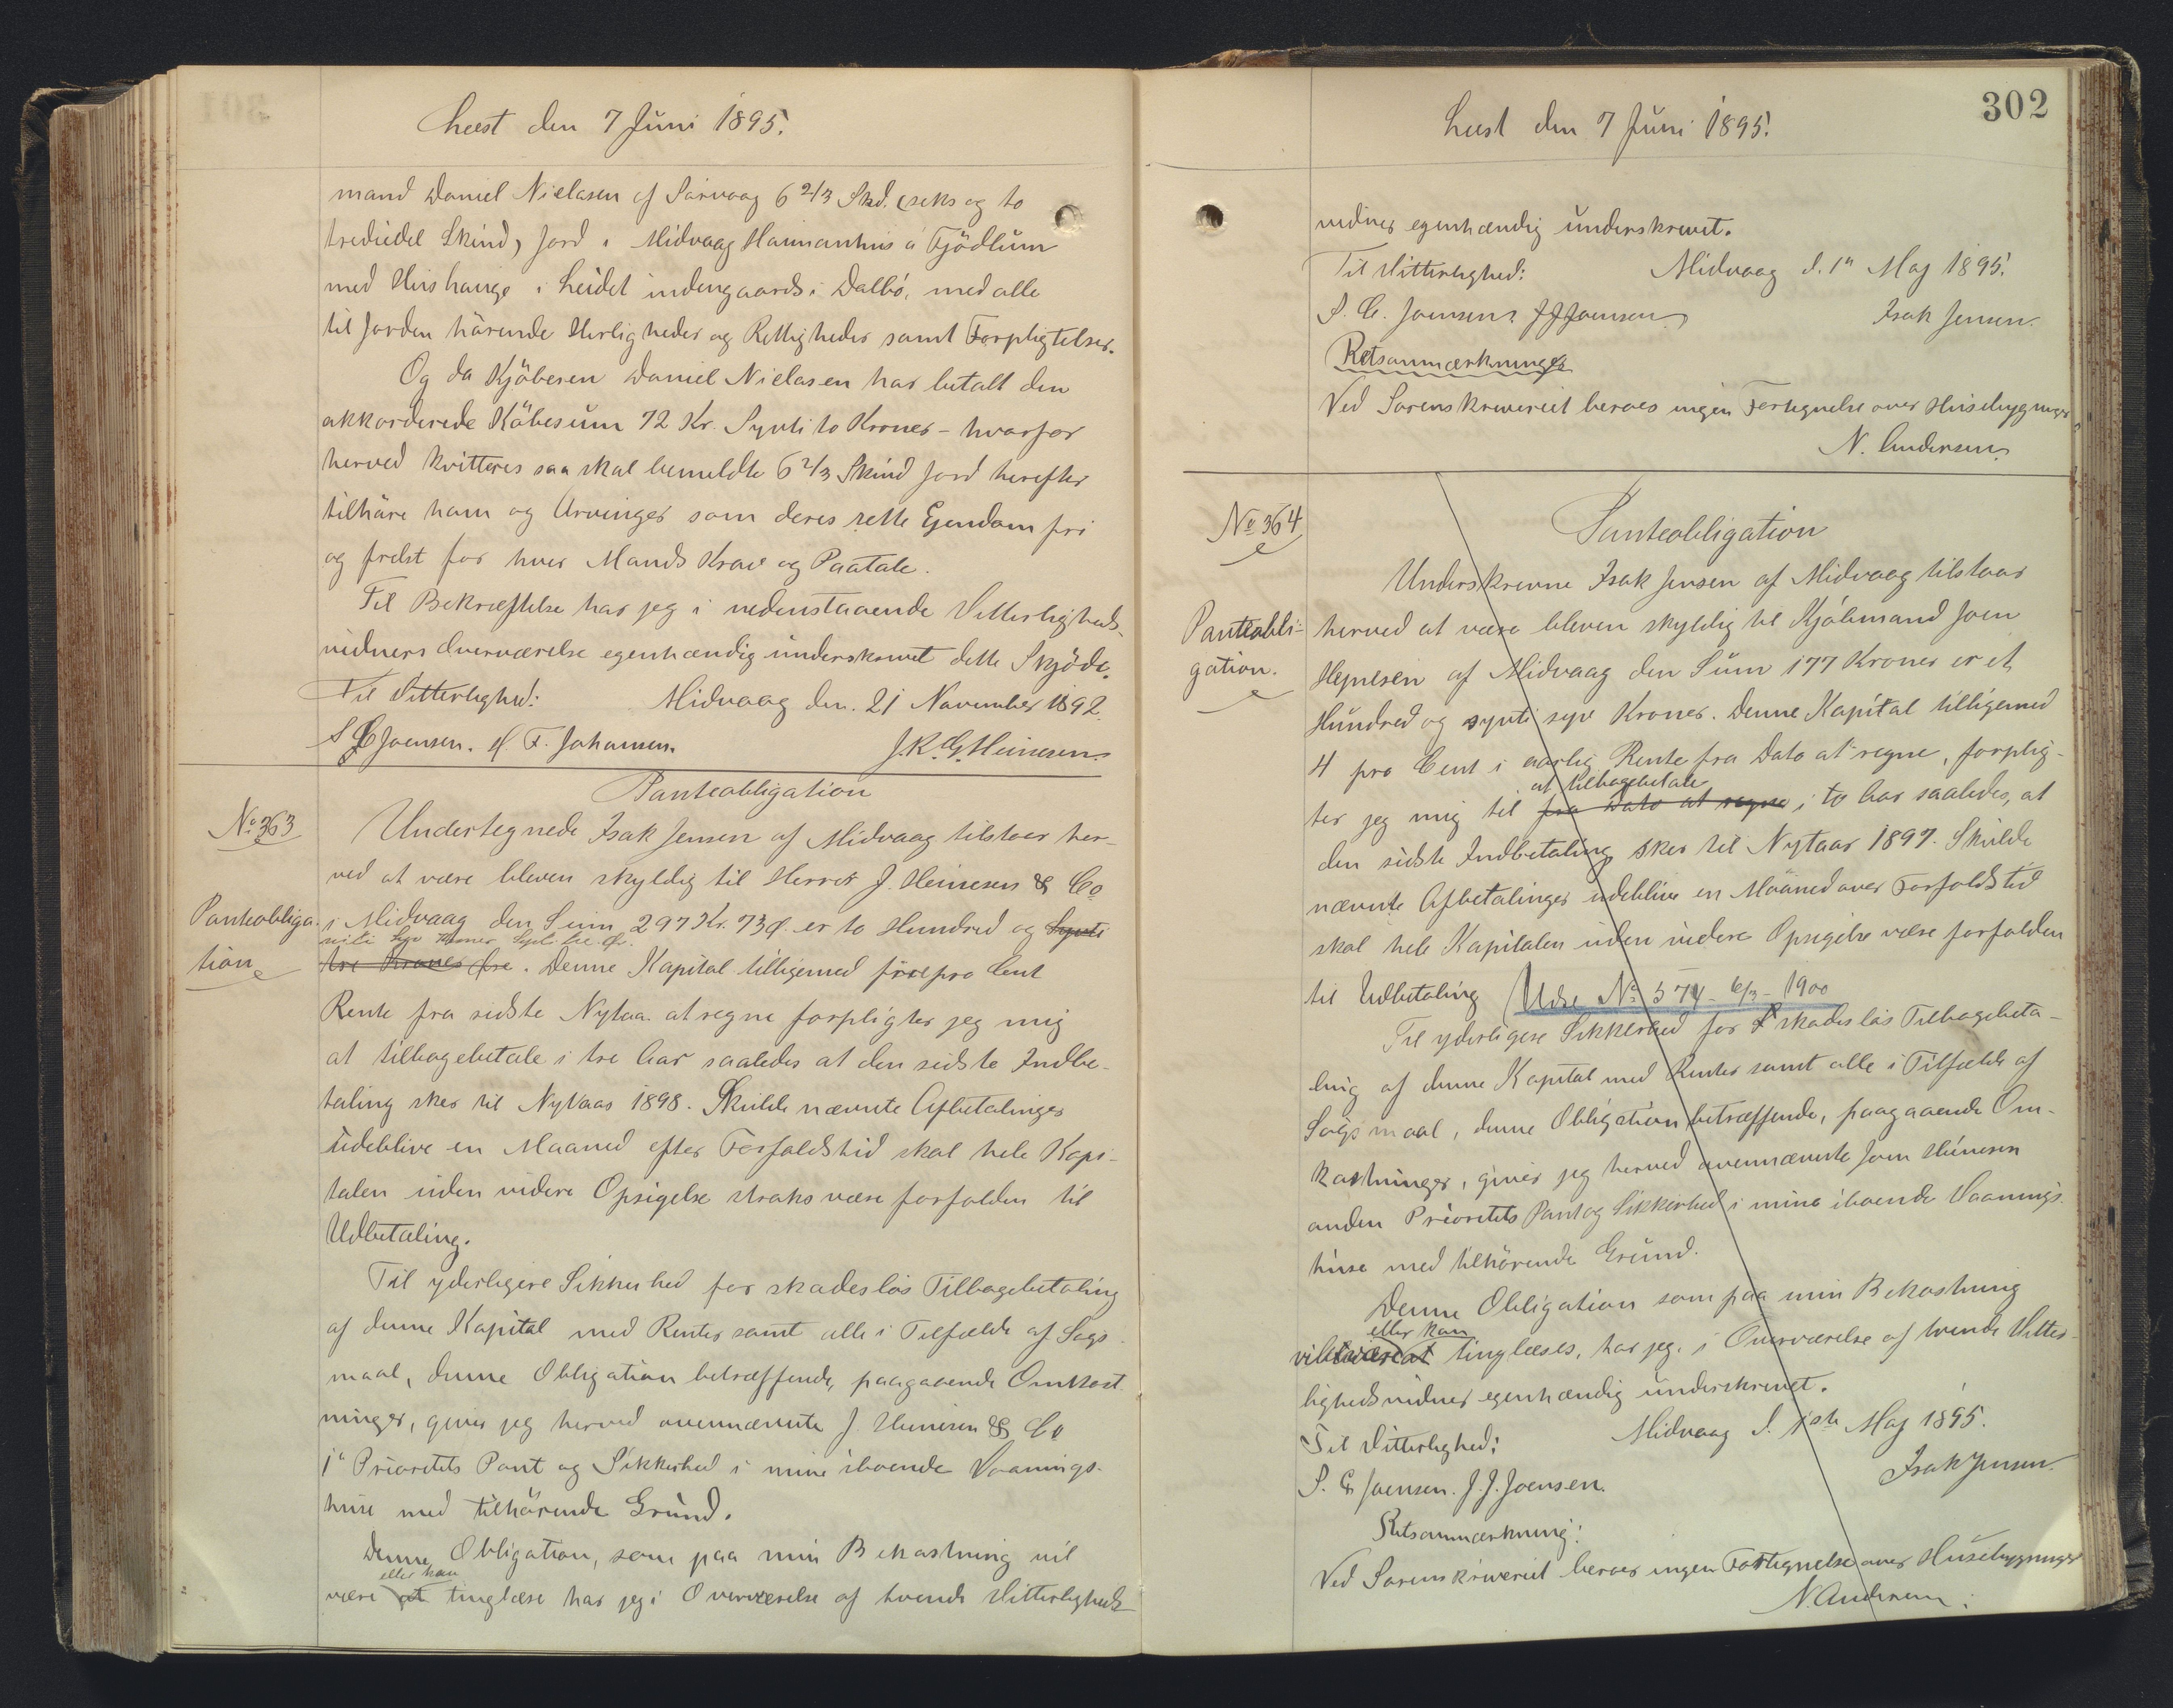 Læst den 7 Juni 1895.
mand Daniel Nielasen af Sørvaag 6 2/3 Skd. (seks og to
trediedel Skind) Jord i Midvaag Hannanhus á Fjödlum
med Hushauge i Leidet indengaards i Dalbö, med alle
til Jorden hörende Herligheder og Rettigheder samt Forpligtelser.
Og da Kjöberen Daniel Nielasen har betalt den
akkorderede Köbesum 72 Kr. Sypti to Kroner - hvorfor
herved kvitteres saa skal bemeldte 6 2/3 Skind Jord herefter
tilhöre ham og Arvinger som deres rette Ejendom fri
og frelst for hver Mands Krav og Paatale.
Til Bekræftelse har jeg i nedenstaaende Vitterligheds-
vidners Overværelse egenhændig underskrevet dette Skjöde.
Til Vitterlighed: Midvaag den. 21 November 1892.
S C Joensen. H. F. Johansen. J. K. G. Heinesen.
Panteobligation
No 363
Undertegnede Isak Jensen af Midvaag tilstaar her-
ved at være bleven skyldig til Herrer J. Heinesen & Co
Panteobliga-
tion
i Midvaag den Sum 297 Kr. 73 Ø. er to Hundred og Sypti
niti Syv Kroner Sypti tre Ør.
tre Kroner Øre. Denne Kapital tilligemed fire pro Cent
Rente fra sidste Nytaa. at regne forpligter jeg mig
at tilbagebetale i tre Aar saaledes at den sidste Indbe-
taling sker til Nytaar 1898. Skulde nævnte Afbetalinger
udeblive en Maaned efter Forfaldstid skal hele Kapi-
talen uden videre Opsigelse straks være forfalden til
Udbetaling.
Til yderligere Sikkerhed for skadeslös Tilbagebetaling
af denne Kapital med Renter samt alle i Tilfælde af Sags
maal, denne Obligation betræffende, paagaaende Omkost-
ninger, giver jeg herved ovennævnte J. Heinesen & Co
1a Prioritets Pant og Sikkerhed i mine iboende Vaanings-
huse med tilhörende Grund.
Denne Obligation, som paa min Bekostning vil
eller kan
være at tinglæse har jeg i Overværelse af tvende Vitterligheds-
302
Læst den 7 Juni 1895.
vidner egenhændig underskrevet.
Til Vitterlighed: Midvaag d. 1n Maj 1895.
S. C. Joensen. J J Joensen Isak Jensen.
Retsanmærkninger
Ved Sorenskriveriet beroes ingen Fortegnelse over Husebygninger
N. Andersen
No 364
Panteobligation
Underskrevne Isak Jensen af Midvaag tilstaar
Panteobli-
gation.
herved at være bleven skyldig til Kjöbmand Joen
Hejnesen af Midvaag den Sum 177 Kroner er et
Hundred og sypti syv Kroner. Denne Kapital tilligemed
4 pro Cent i aarlig Rente fra Dato at regne, forplig-
at tilbagebetale
ter jeg mig til fra Dato at regne i to Aar saaledes, at
den sidste Indbetaling sker til Nytaar 1897. Skulde
nævnte Afbetalinger udeblive en Maaned over Forfaldstid
skal hele Kapitalen uden videre Opsigelse være forfalden
til Udbetaling Udsl. No 574 - 6/3 - 1900
Til yderligere Sikkerhed for skadeslös Tilbagebeta-
ling af denne Kapital med Renter samt alle i Tilfælde af
Sagsmaal, denne Obligation betræffende, paagaaende Om-
kostninger, giver jeg herved ovennævnte Joen Heinesen
anden Prioritets Pant og Sikkerhed i mine iboende Vaanings-
huse med tilhörende Grund.
Denne Obligation som paa min Bekostning
eller kan
vil være at tinglæses, har jeg i Overværelse af tvende Vitter-
lighedsvidner egenhændig underskrevet.
Til Vitterlighed: Midvaag d. 1ste Maj 1895.
S. C Joensen. J. J. Joensen. Isak Jensen.
Retsanmærkning:
Ved Sorenskriveriet beroes ingen Fortegnelse over Husebygninger
N. Andersen.